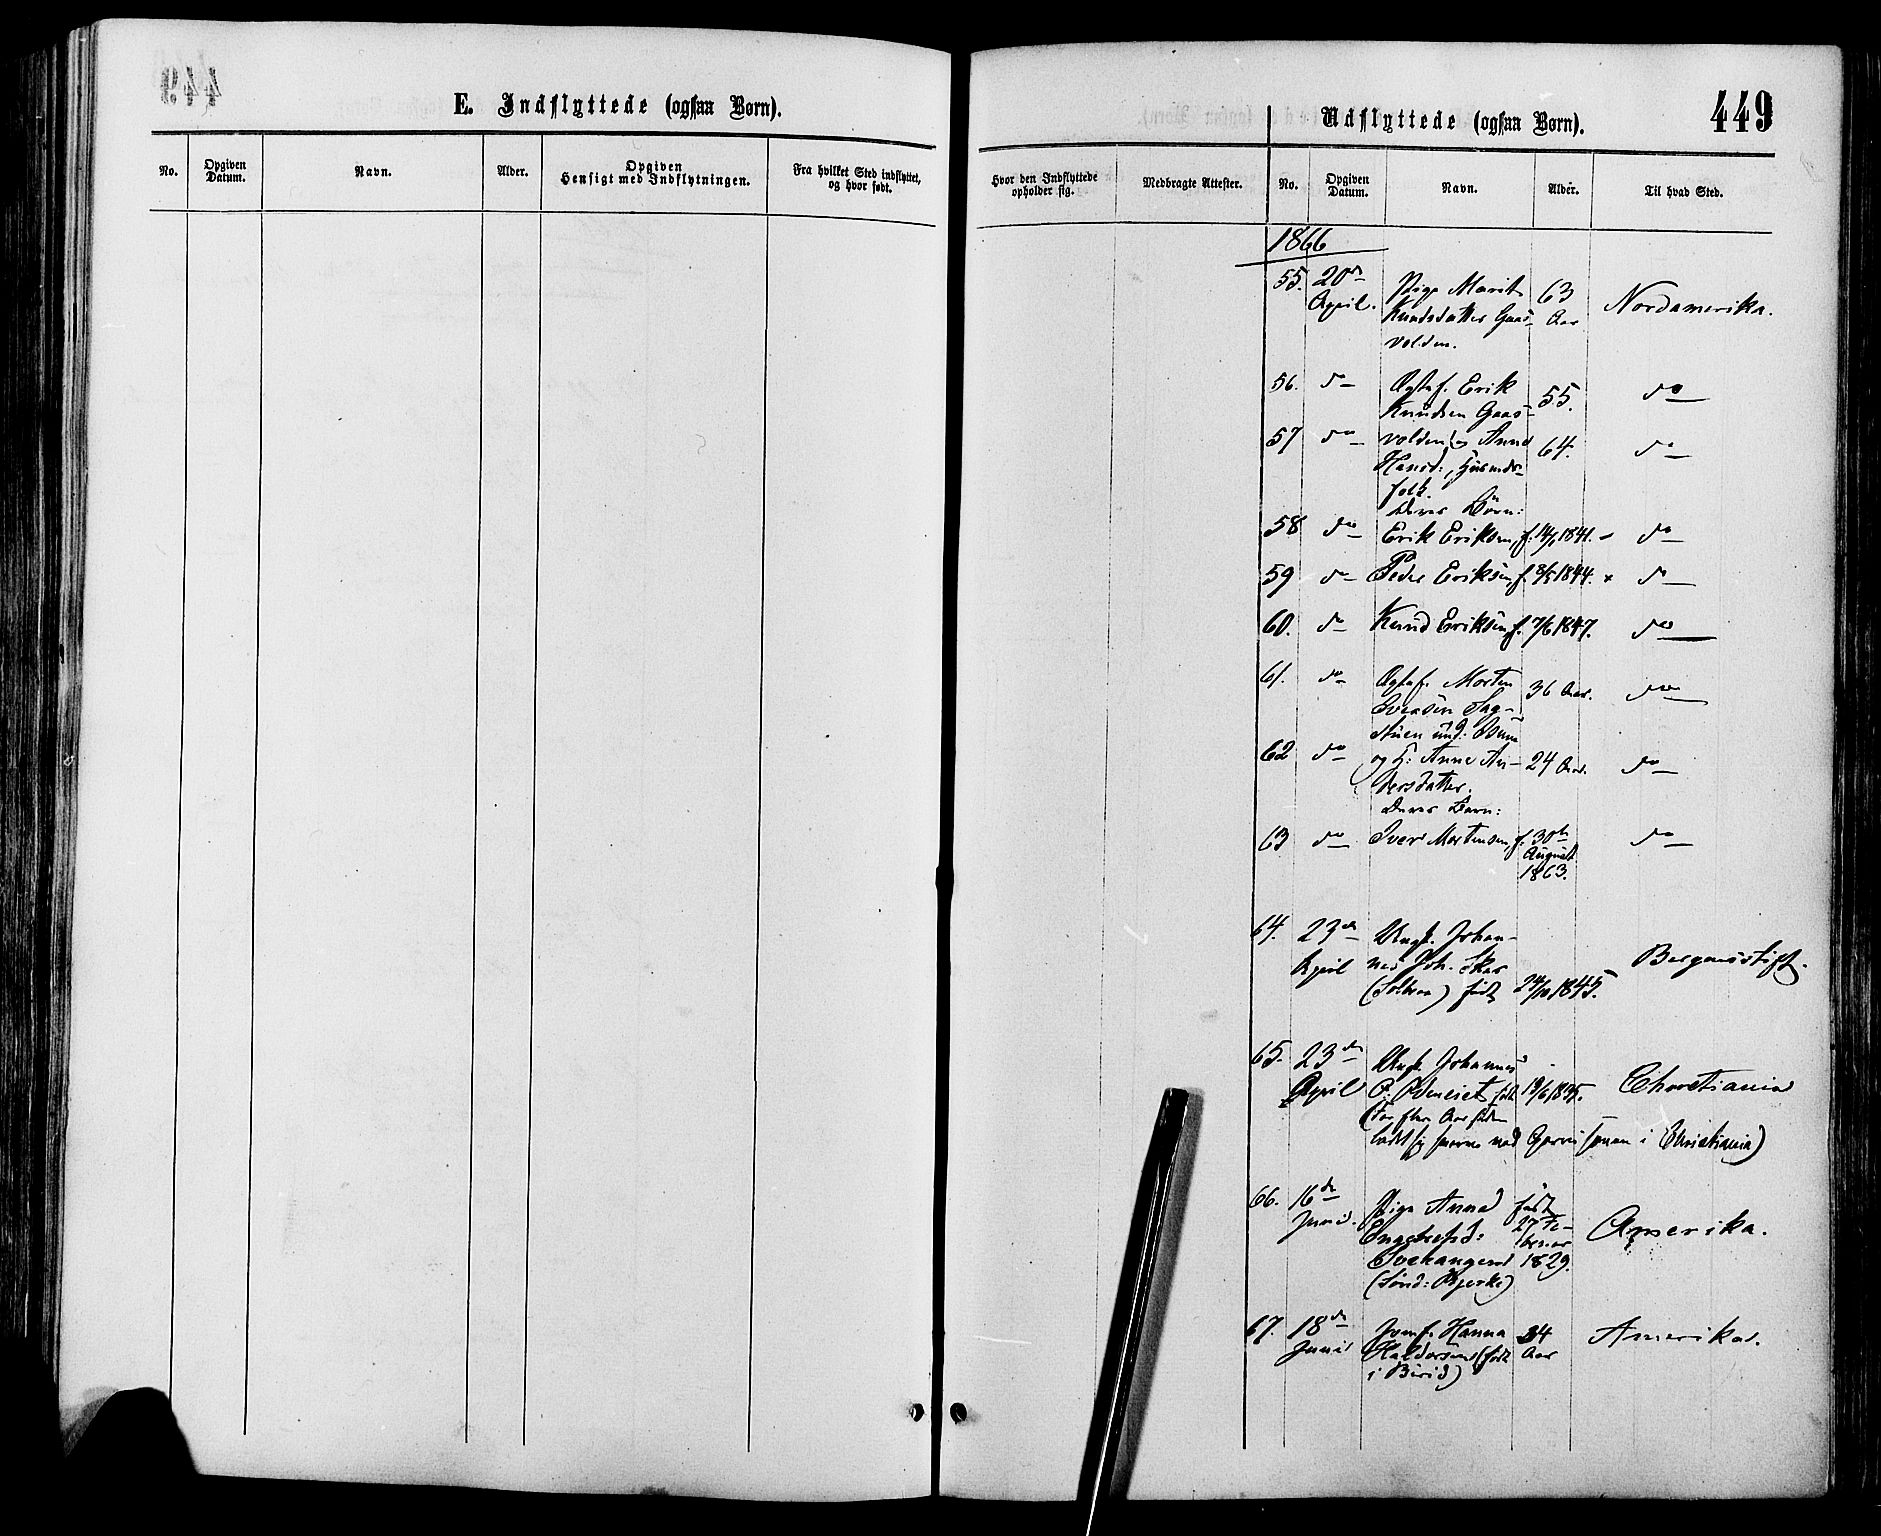 E. Indflyttede (ogsaa Børn).
No.
Opgiven
Datum.
Navn.
Alder.
Opgiven
Hensigt med Indflytningen.
Fra hvilket Sted indflyttet,
og hvor født.
449
Udflyttede (ogsaa Børn).
Hvor den Indflyttede
opholder sig.
Medbragte Attester.
No.
Opgiven
Datum.
Navn.
Alder.
Til hvad Sted.
1866
55. 20de Pige Marit 63 Nordamerika.
April. Knudsdatter Gaas- Aar
volden.
56. do Erik 55. do
Knudsen Gaas-
57 do volden og Anne 64. do
Hansd:, Huusmds-
folk.
Deres Børn:
58 do Erik Eriksen, f. 14/1 1841. do
59 do Peder Eriksen, f. 8/5 1844. do
60. do Knud Eriksen, f. 7/6 1847. do
61. do Morten 36 Aar. do
Iversen
62 do og H: Anne An- 24 Aar. do
dersdatter.
Deres Barn:
63 do Iver Mortensen, f. 30te do
August
1863.
64. 23de Ungk. Johan- Bergensstift.
April nes Joh. Skar
født 24/10 1845.
65. 23de Ungk. Johannes Christiania
April P. født 19/6 1835.
(For flere Aar siden
ladet sig hverve ved Garnisonen i Christiania)
66. 16de Pige Anne født Amerika.
Juni. Engebretsd: 27 Fe-
bruar
1829.
(Sønd: Bjerke)
67. 18de Jomf. Hanna 34 Amerika.
Juni Haldorsen (født Aar
i Birid)